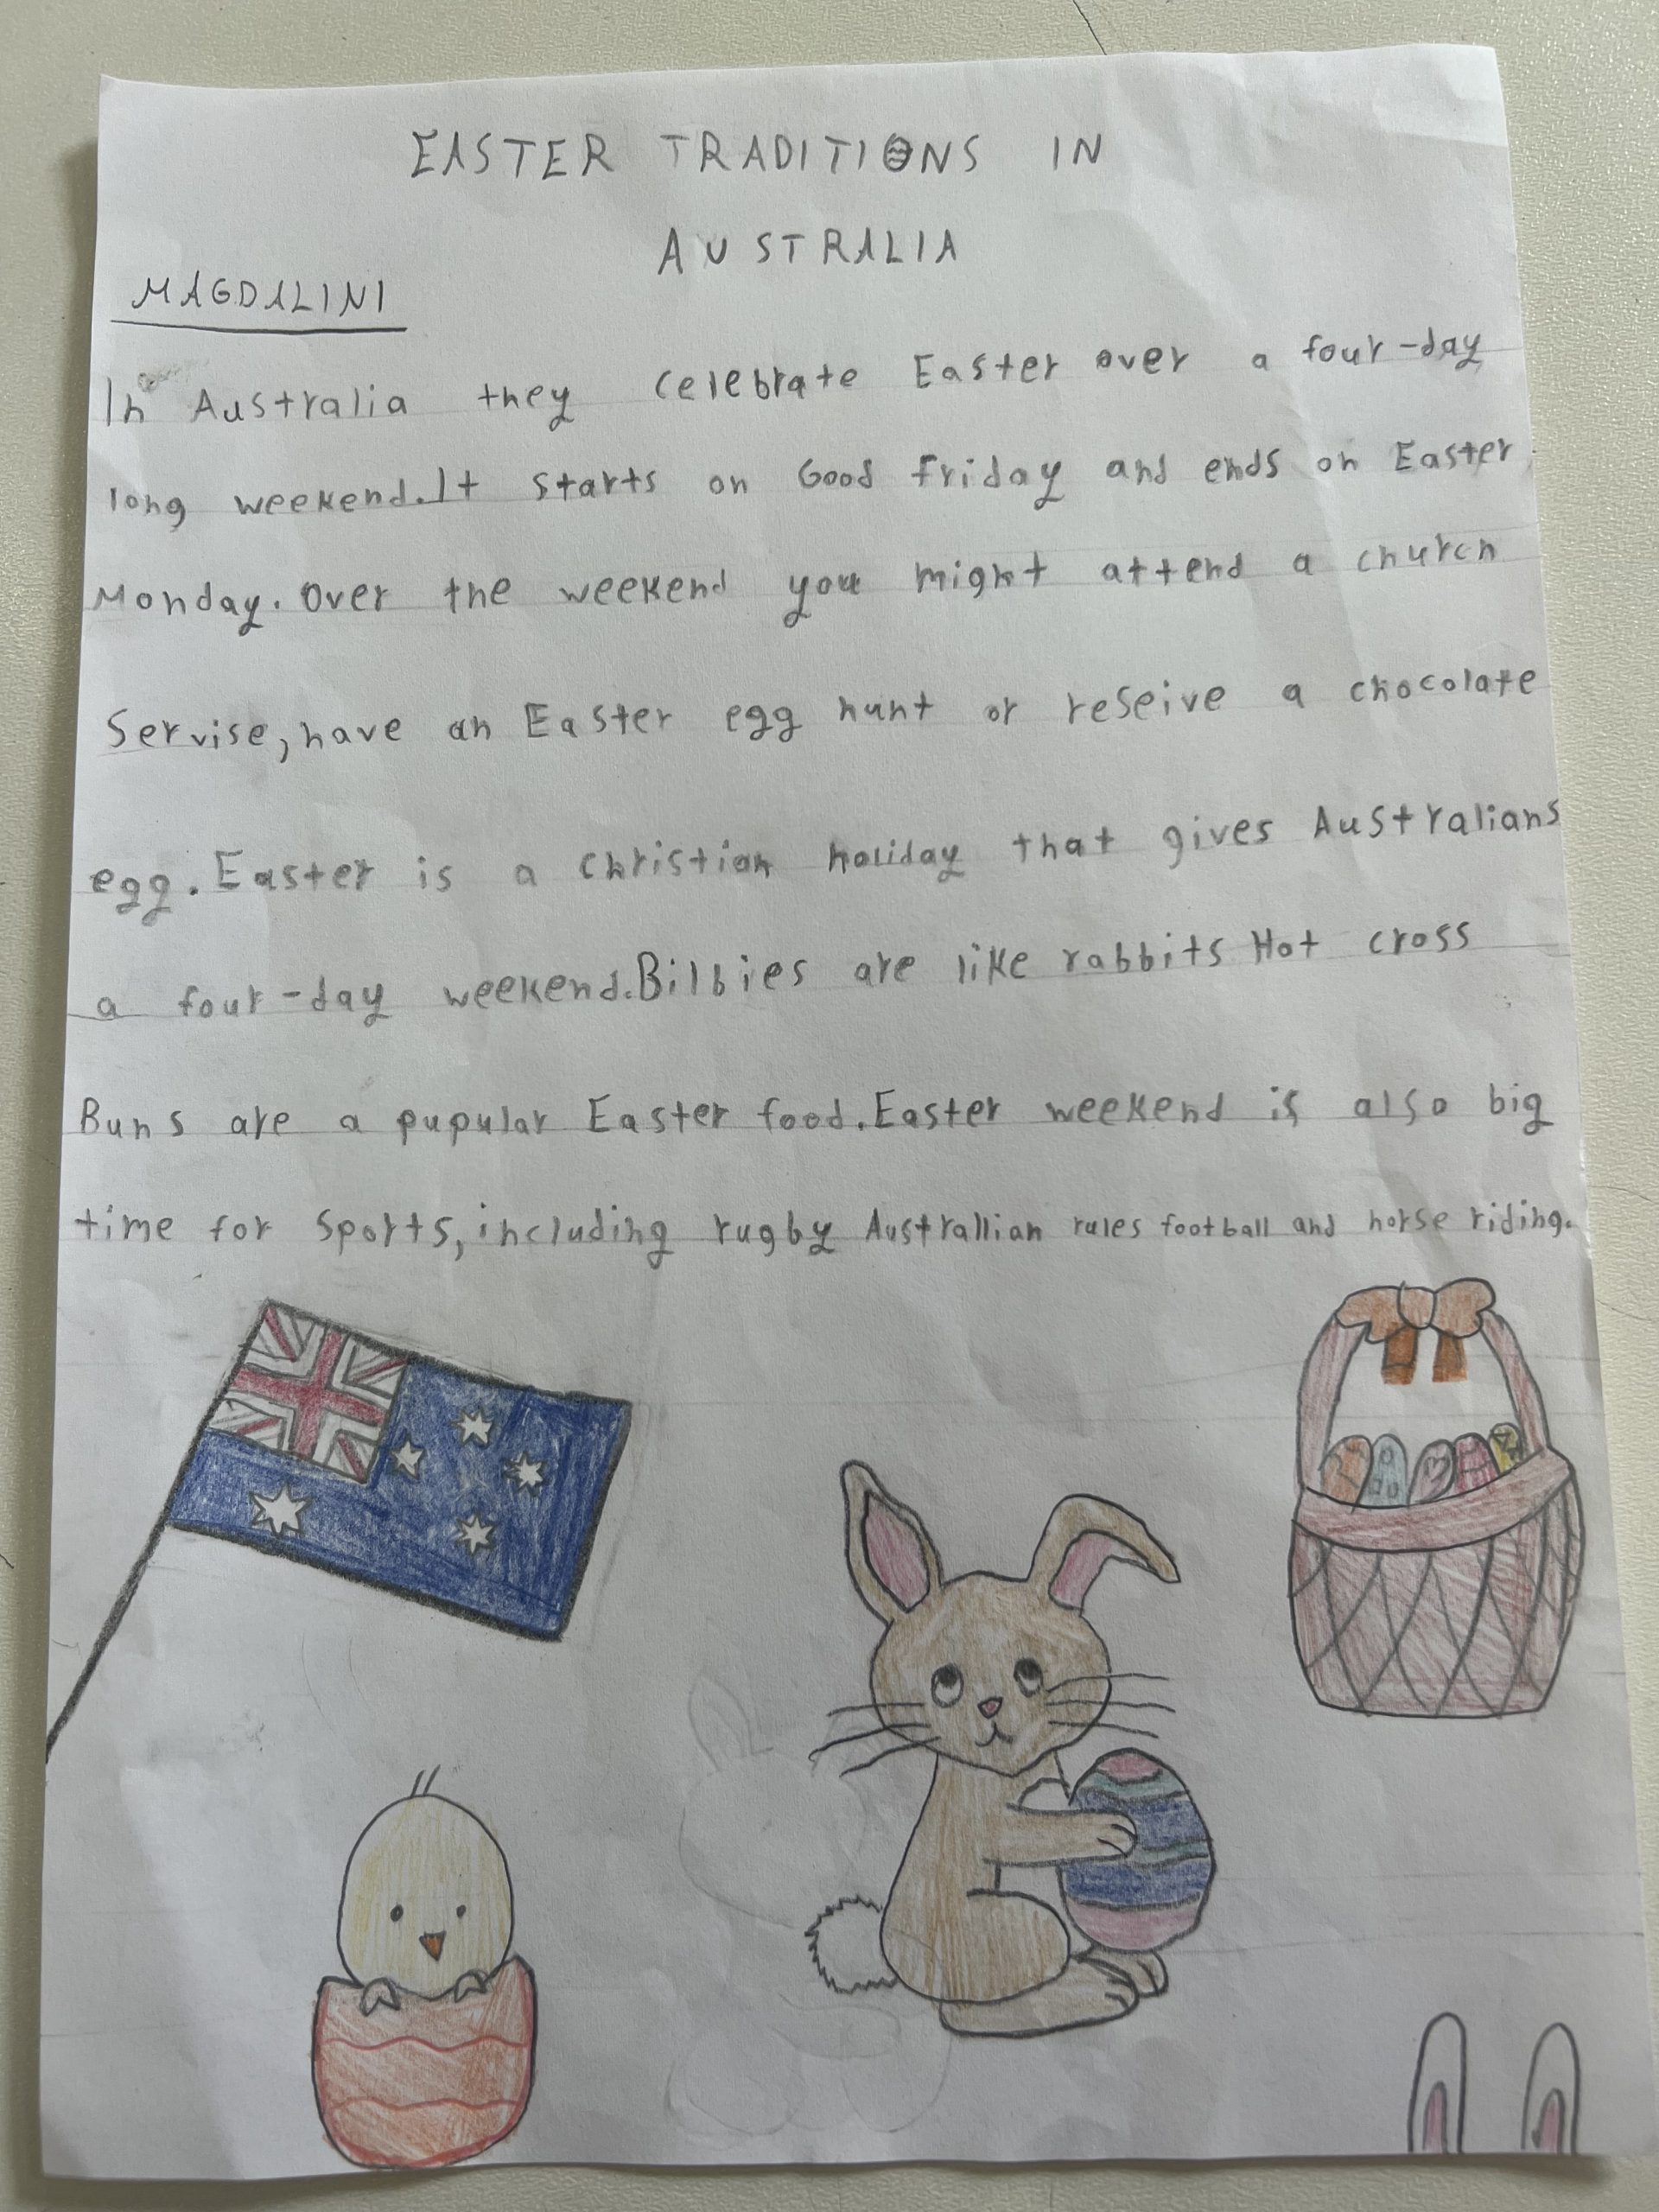 EASTER TRADITIONS IN
AUSTRALIA
MAGDALINI
In Australia they celebrate Easter over a four-day
long weekend.It starts on Good Friday and ends on Easter
Monday. Over the weekend you might attend a church
Servise, have an Easter egg hunt or reseive a chocolate
egg. Easter is a Christian holiday that gives Australians
a four-day weekend.Bilbies are like rabbits Hot cross
Buns are a pupular Easter food.Easter weekend is also big
time for Sports, including rugby Australlian rules football and horse riding.